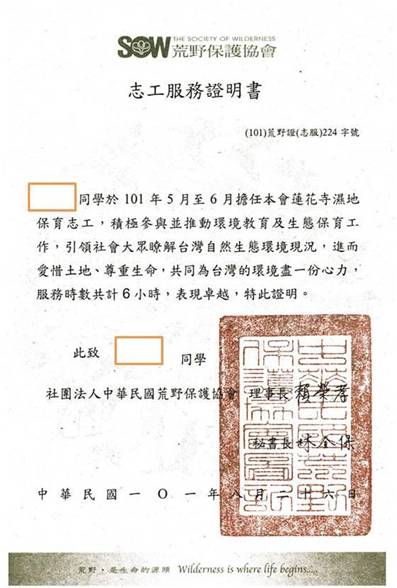 SOW THE SOCIETY OF WILDERNESS
荒野保護協會
志工服務證明書
(101)荒野證(志服)224 字號
同學於 101 年 5 月至 6 月擔任本會蓮花寺濕地
保育志工，積極參與並推動環境教育及生態保育工
作，引領社會大眾瞭解台灣自然生態環境現況，進而
愛惜土地、尊重生命，共同為台灣的環境盡一份心力，
服務時數共計 6 小時，表現卓越，特此證明。
此致 同學
社團法人中華民國荒野保護協會 理事長 賴榮孝
秘書長 林金保
中華民國一〇一年八月二十六日
荒野，是生命的源頭 Wilderness is where life begins....